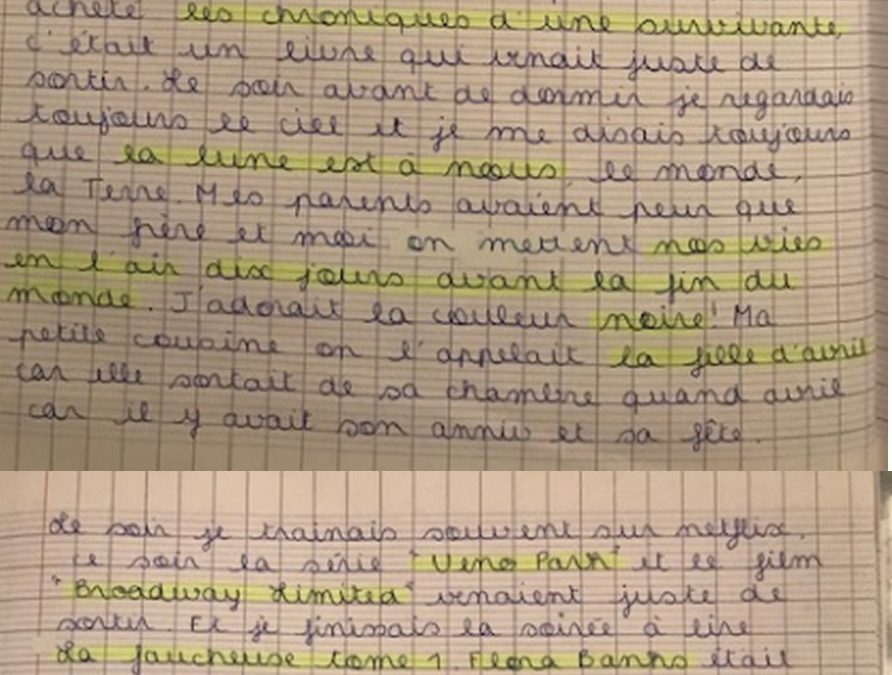 acheté les chroniques d'une survivante,
c'était un livre qui venait juste de
sortir. Le soir avant de dormir je regardais
toujours le ciel et je me disais toujours
que la lune est à nous, le monde,
la Terre. Mes parents avaient peur que
mon frère et moi on mettent nos vies
en l'air dix jours avant la fin du
monde. J'adorait la couleur noire! Ma
petite cousine on l'appelait la fille d'avril
car elle sortait de sa chambre quand avril
car il y avait son anniv et sa fête.
Le soir je trainais souvent sur netflix.
Ce soir la série "Uena Park" et le film
"Broadway Limited" venaient juste de
sortir. Et je finissais la soirée à lire
La faucheuse tome 1. Flora Banks était